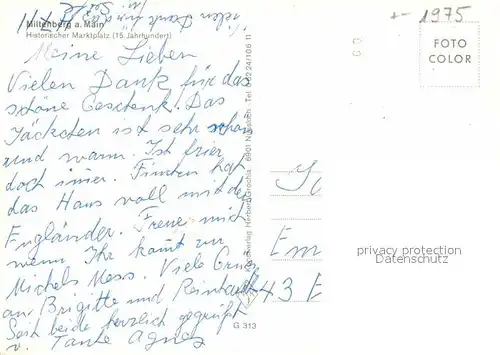 +- 1975
Miltenberg a. Main
Historischer Marktplatz (15. Jahrhundert)
FOTO
COLOR
Meine Lieben
Vielen Dank für das
schöne Geschenk. Das
Jäckchen ist sehr schön
und warm. Ist hier
doch immer.
das Haus voll mit der
Engländer. Freue mich
wenn Ihr kommt zur
Michels Mess. Viele Grüße
an Brigitte und Reinhardt
Seit beide herzlich gegrüßt
v. Tante Agnes
G 313
Em
43 E
privacy protection
Datenschutz